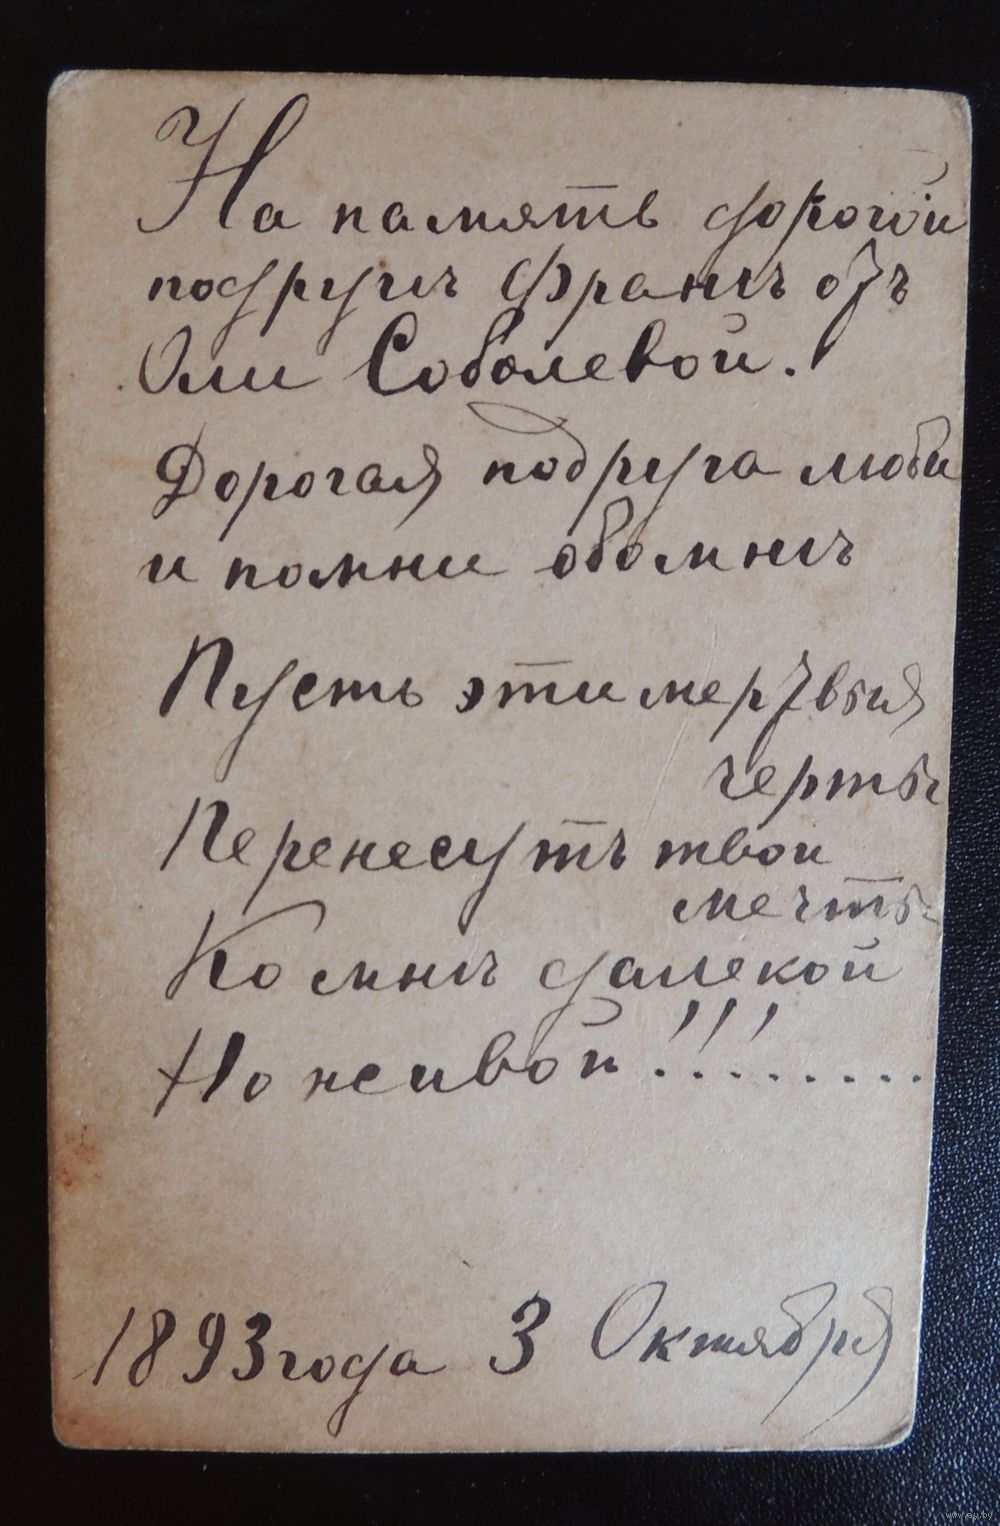 На память дорогой
подругѣ Франѣ отъ
Оли Соболевой.
Дорогая подруга люби
и помни обо мнѣ
Пусть эти мертвыя
черты
Перенесутъ твои
мечты
Ко мнѣ далекой
Но живой!!!.....
1893 года 3 Октября
www.ay.by